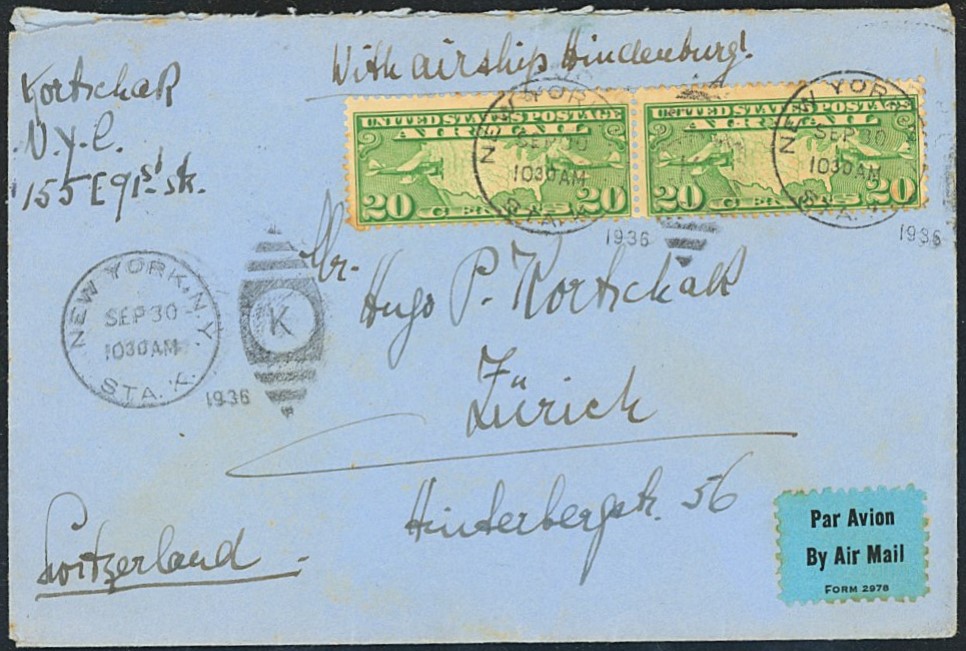 With airship Hindenburg!
Kortschak
N.Y.C.
155 E 91st str.
UNITED STATES POSTAGE
AIR MAIL
20 CENTS 20
UNITED STATES POSTAGE
AIR MAIL
20 CENTS 20
NEW YORK, N.Y.
SEP 30
1030 AM
STA. K.
1936
NEW YORK, N.Y.
SEP 30
1030 AM
STA. K.
1936
NEW YORK, N.Y.
SEP 30
1030 AM
STA. K.
1936
K
Mr.
Hugo P. Kortschak
Zürich
Hinterbergstr. 56
Switzerland
Par Avion
By Air Mail
FORM 2978